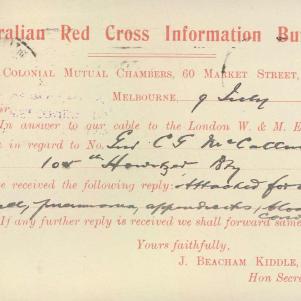 ralian Red Cross Information Bu
COLONIAL MUTUAL CHAMBERS, 60 MARKET STREET,
MELBOURNE, 9 July
In answer to our cable to the London W. & M. E
in regard to No. C G McCallum
108th Howitzer Bty
e received the following reply: Attacked for
pneumonia, appendicitis,
If any further reply is received we shall forward same
Yours faithfully,
J. BEACHAM KIDDLE,
Hon Secre